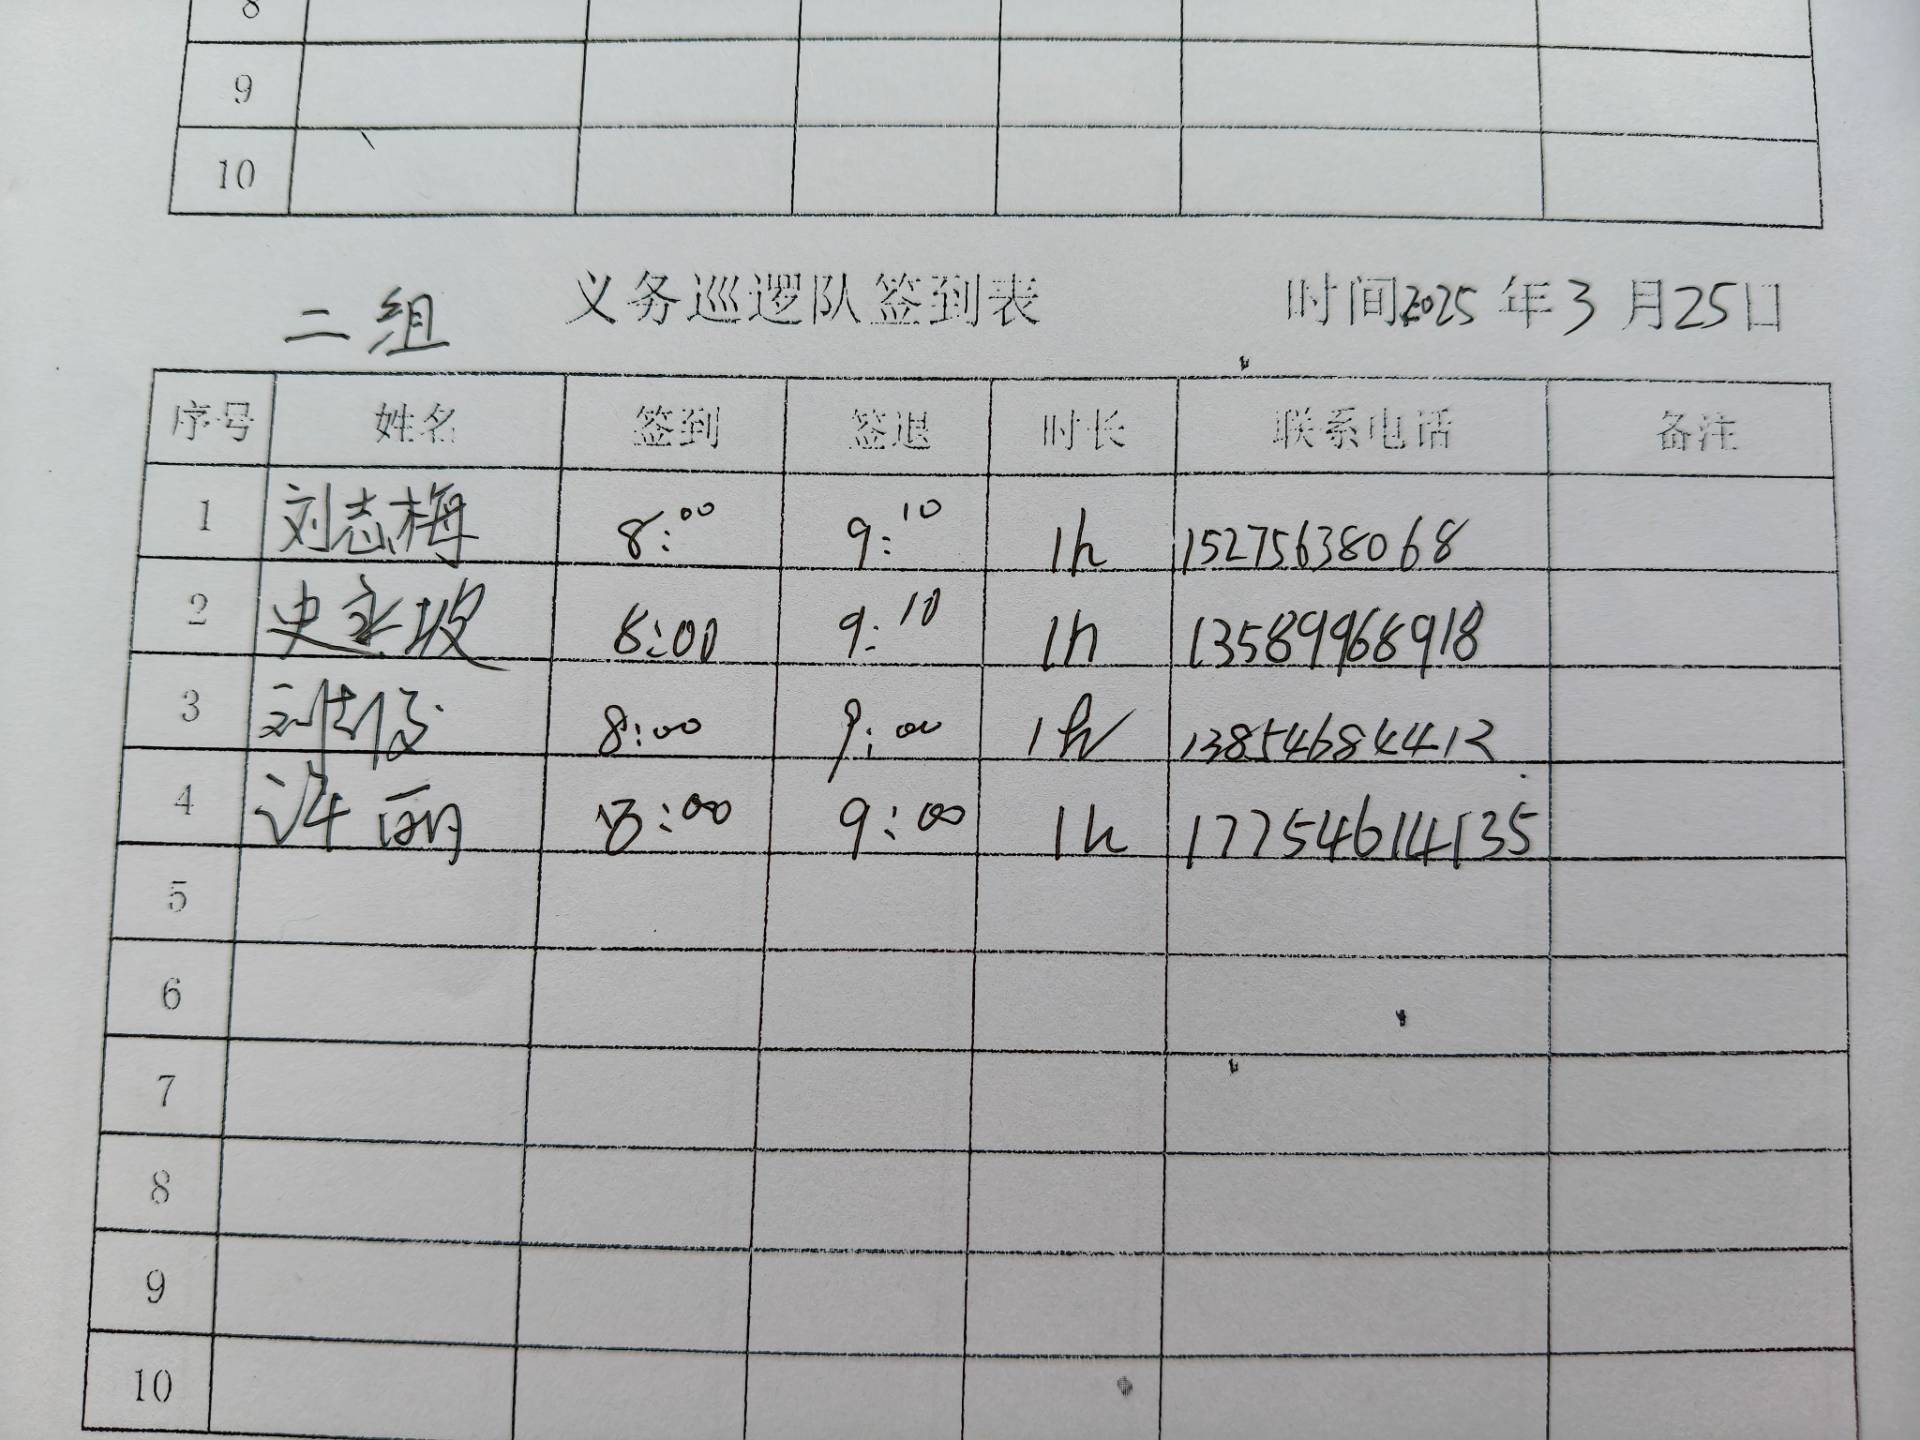 8
9
10
二组 义务巡逻队签到表 时间2025年3月25日
序号 姓名 签到 签退 时长 联系电话 备注
1 刘志梅 8:00 9:10 1h 15275638068
2 史 坡 8:00 9:10 1h 13589968918
3 刘 8:00 9:00 1h 13854684412
4 许丽 8:00 9:00 1h 17754614135
5
6
7
8
9
10